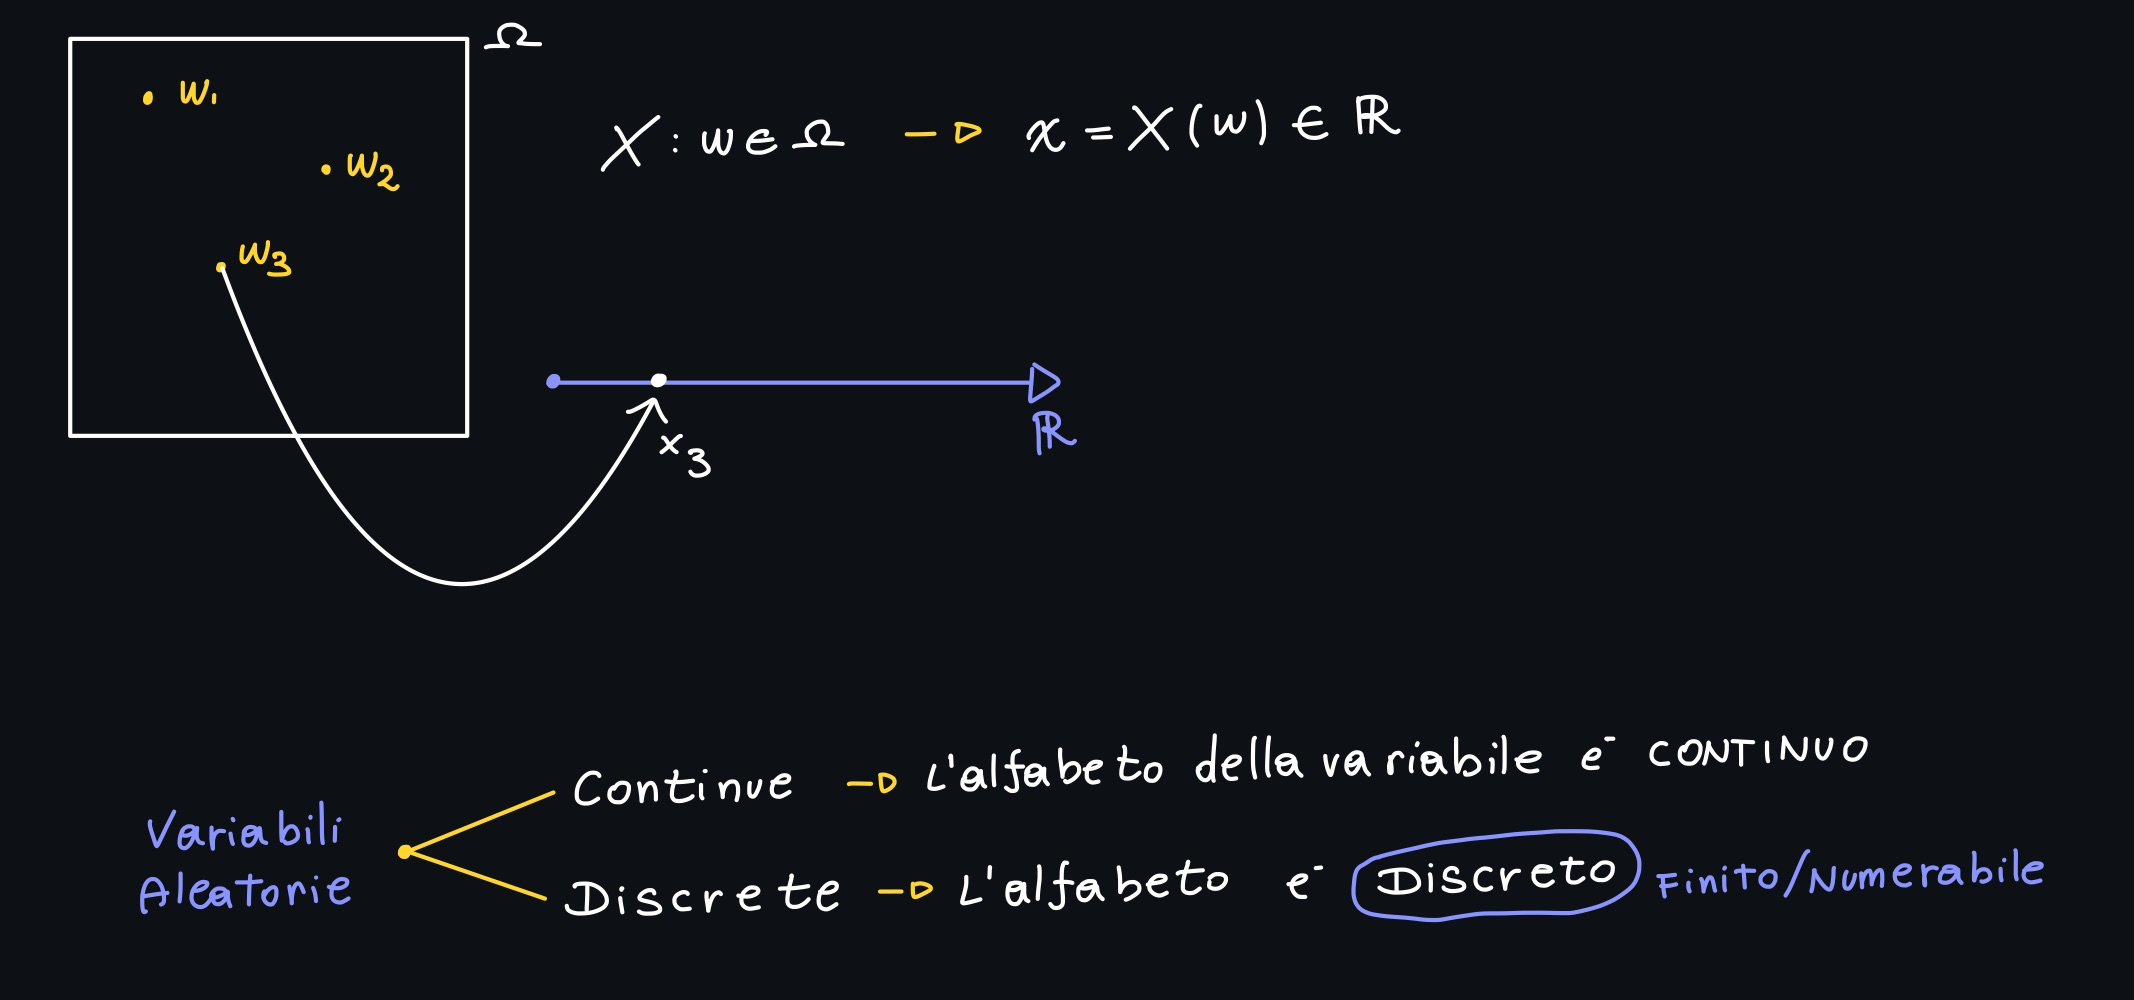 Ω
w₁
w₂
w₃
X : w ∈ Ω → x = X(w) ∈ ℝ
x₃
ℝ
Variabili
Aleatorie
Continue → L'alfabeto della variabile e- CONTINUO
Discrete → L'alfabeto e- Discreto Finito/Numerabile